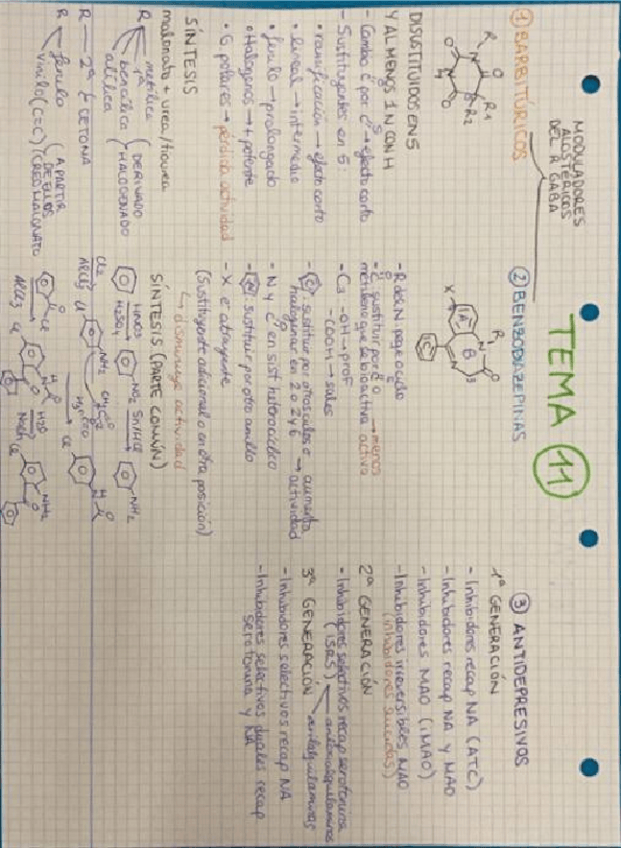 TEMA 11
MODULADORES
ALOSTÉRICOS
DEL R GABA
① BARBITÚRICOS
DISUSTITUIDOS EN 5
Y AL MENOS 1 N CON H
- Cambio
por
→ efecto corto
- Sustituyentes en 5:
• ramificación → efecto corto
• lineal → intermedio
• fenilo → prolongado
• Halógenos → + potente
• G polares → pérdida actividad
SÍNTESIS
malonato + urea/tiourea
R
metílica
1ª
bencílica
alílica
(DERIVADO
HALOGENADO
R — 2ª + CETONA
R
fenilo
vinilo (C=C)
(A PARTIR
DE ELLOS
CREO MALONATO)
② BENZODIAZEPINAS
- R del N pequeño
sustituir por
metileno que se bioactiva
→ menos
activa
- C3 -OH → prof
-COOH → sales
: sustituir por otros ciclos o
halogenar en 2 o 2 y 6
→ aumenta
actividad
- N y
en sist heterocíclico
: sustituir por otro anillo
- X e⁻ atrayente
(Sustituyente adicional o en otra posición)
↳ disminuye actividad
SÍNTESIS (PARTE COMÚN)
HNO3
H2SO4
NO2
Sn/HCl
NH2
Cl2
AlCl3
Cl
NH2
H
Cl
AlCl3
H2O
NaOH
NH2
③ ANTIDEPRESIVOS
1ª GENERACIÓN
- Inhibidores recap NA (ATC)
- Inhibidores recap NA y MAO
- Inhibidores MAO (iMAO)
- Inhibidores irreversibles MAO
(inhibidores suicidas)
2ª GENERACIÓN
• Inhibidores selectivos recap serotonina
(ISRS)
ariloxialquilaminas
arilalquilaminas
3ª GENERACIÓN
- Inhibidores selectivos recap NA
- Inhibidores selectivos duales recap
serotonina y NA